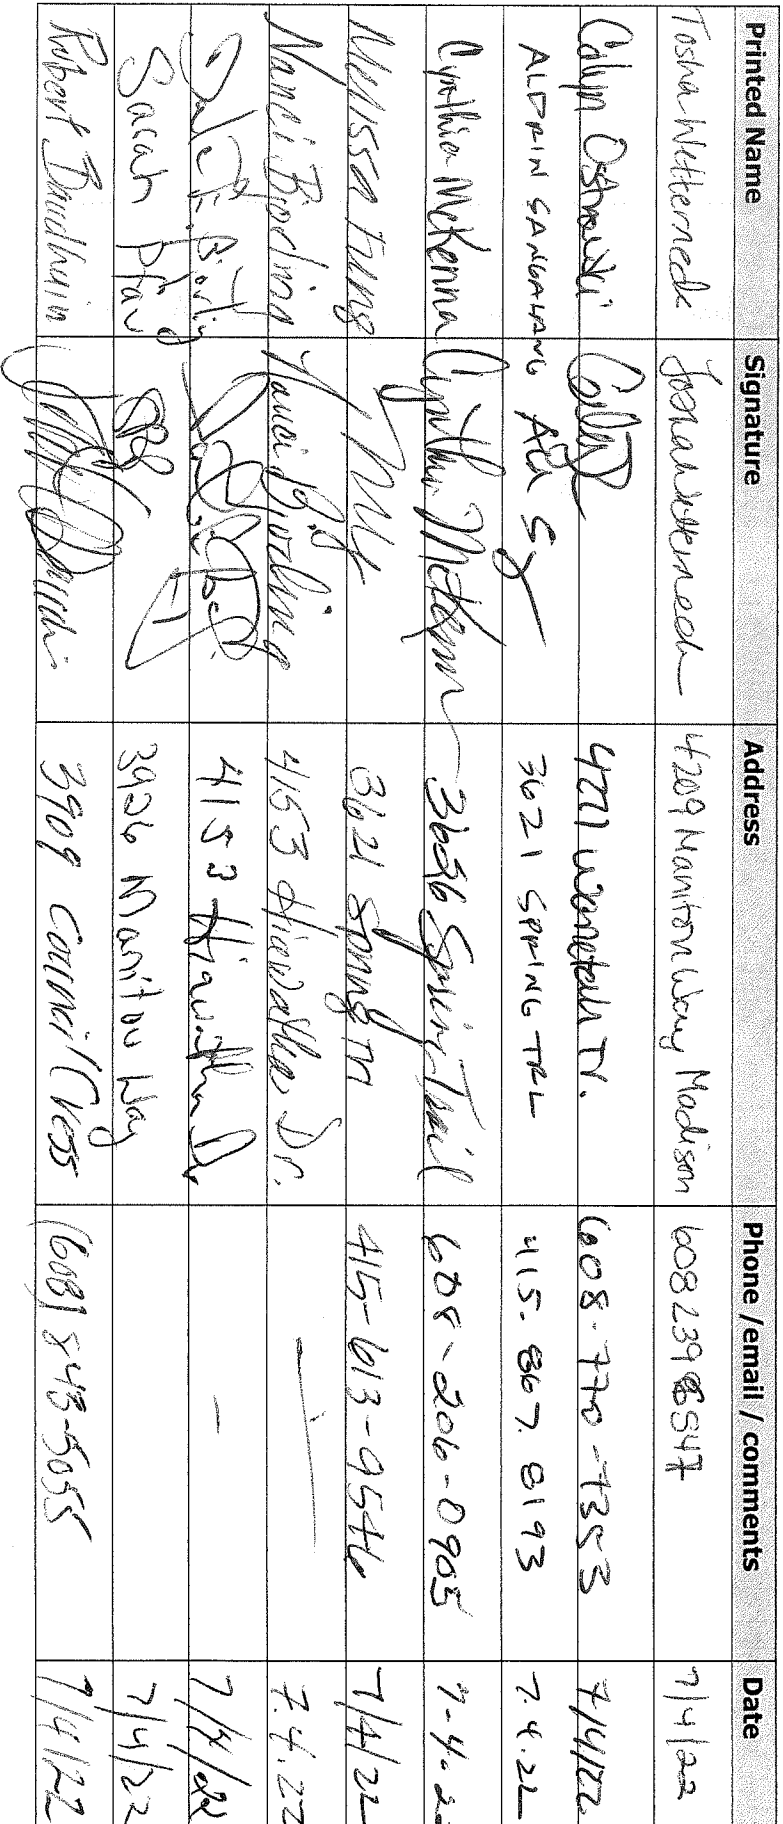 Printed Name Signature Address Phone /email / comments Date
Tosha Wetterneck Tosha Wetterneck 4209 Manitou Way Madison 608 239 8547 7/4/22
Calyn Ostrowski 4221 Wanetah Tr. 608-770-7353 7/4/22
ALDRIN SANGALANG 3621 SPRING TRL 415.867.8193 7.4.22
Cynthia McKenna Cynthia McKenna 3656 Spring Trail 608-206-0905 7-4-22
Melissa Fung 3621 Spring Trl 415-613-9546 7/4/22
Nanci Bjorling Nanci Bjorling 4153 Hiawatha Dr. — 7.4.22
Bjorling 4153 Hiawatha Dr. - 7/4/22
Sarah Pfau 3926 Manitou Way 7/4/22
Robert Baudhuin 3909 Council Cress (608) 843-5055 7/4/22